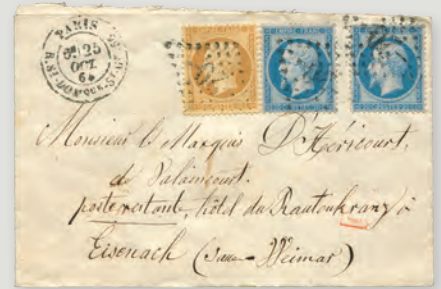 PARIS
25
OCT.
64
EMPIRE FRANC
EMPIRE FRANC
Monsieur le Marquis D'Héricourt,
de Valaincourt.
poste restante, hôtel du Rautenkranz à
Eisenach (Saxe-Weimar)